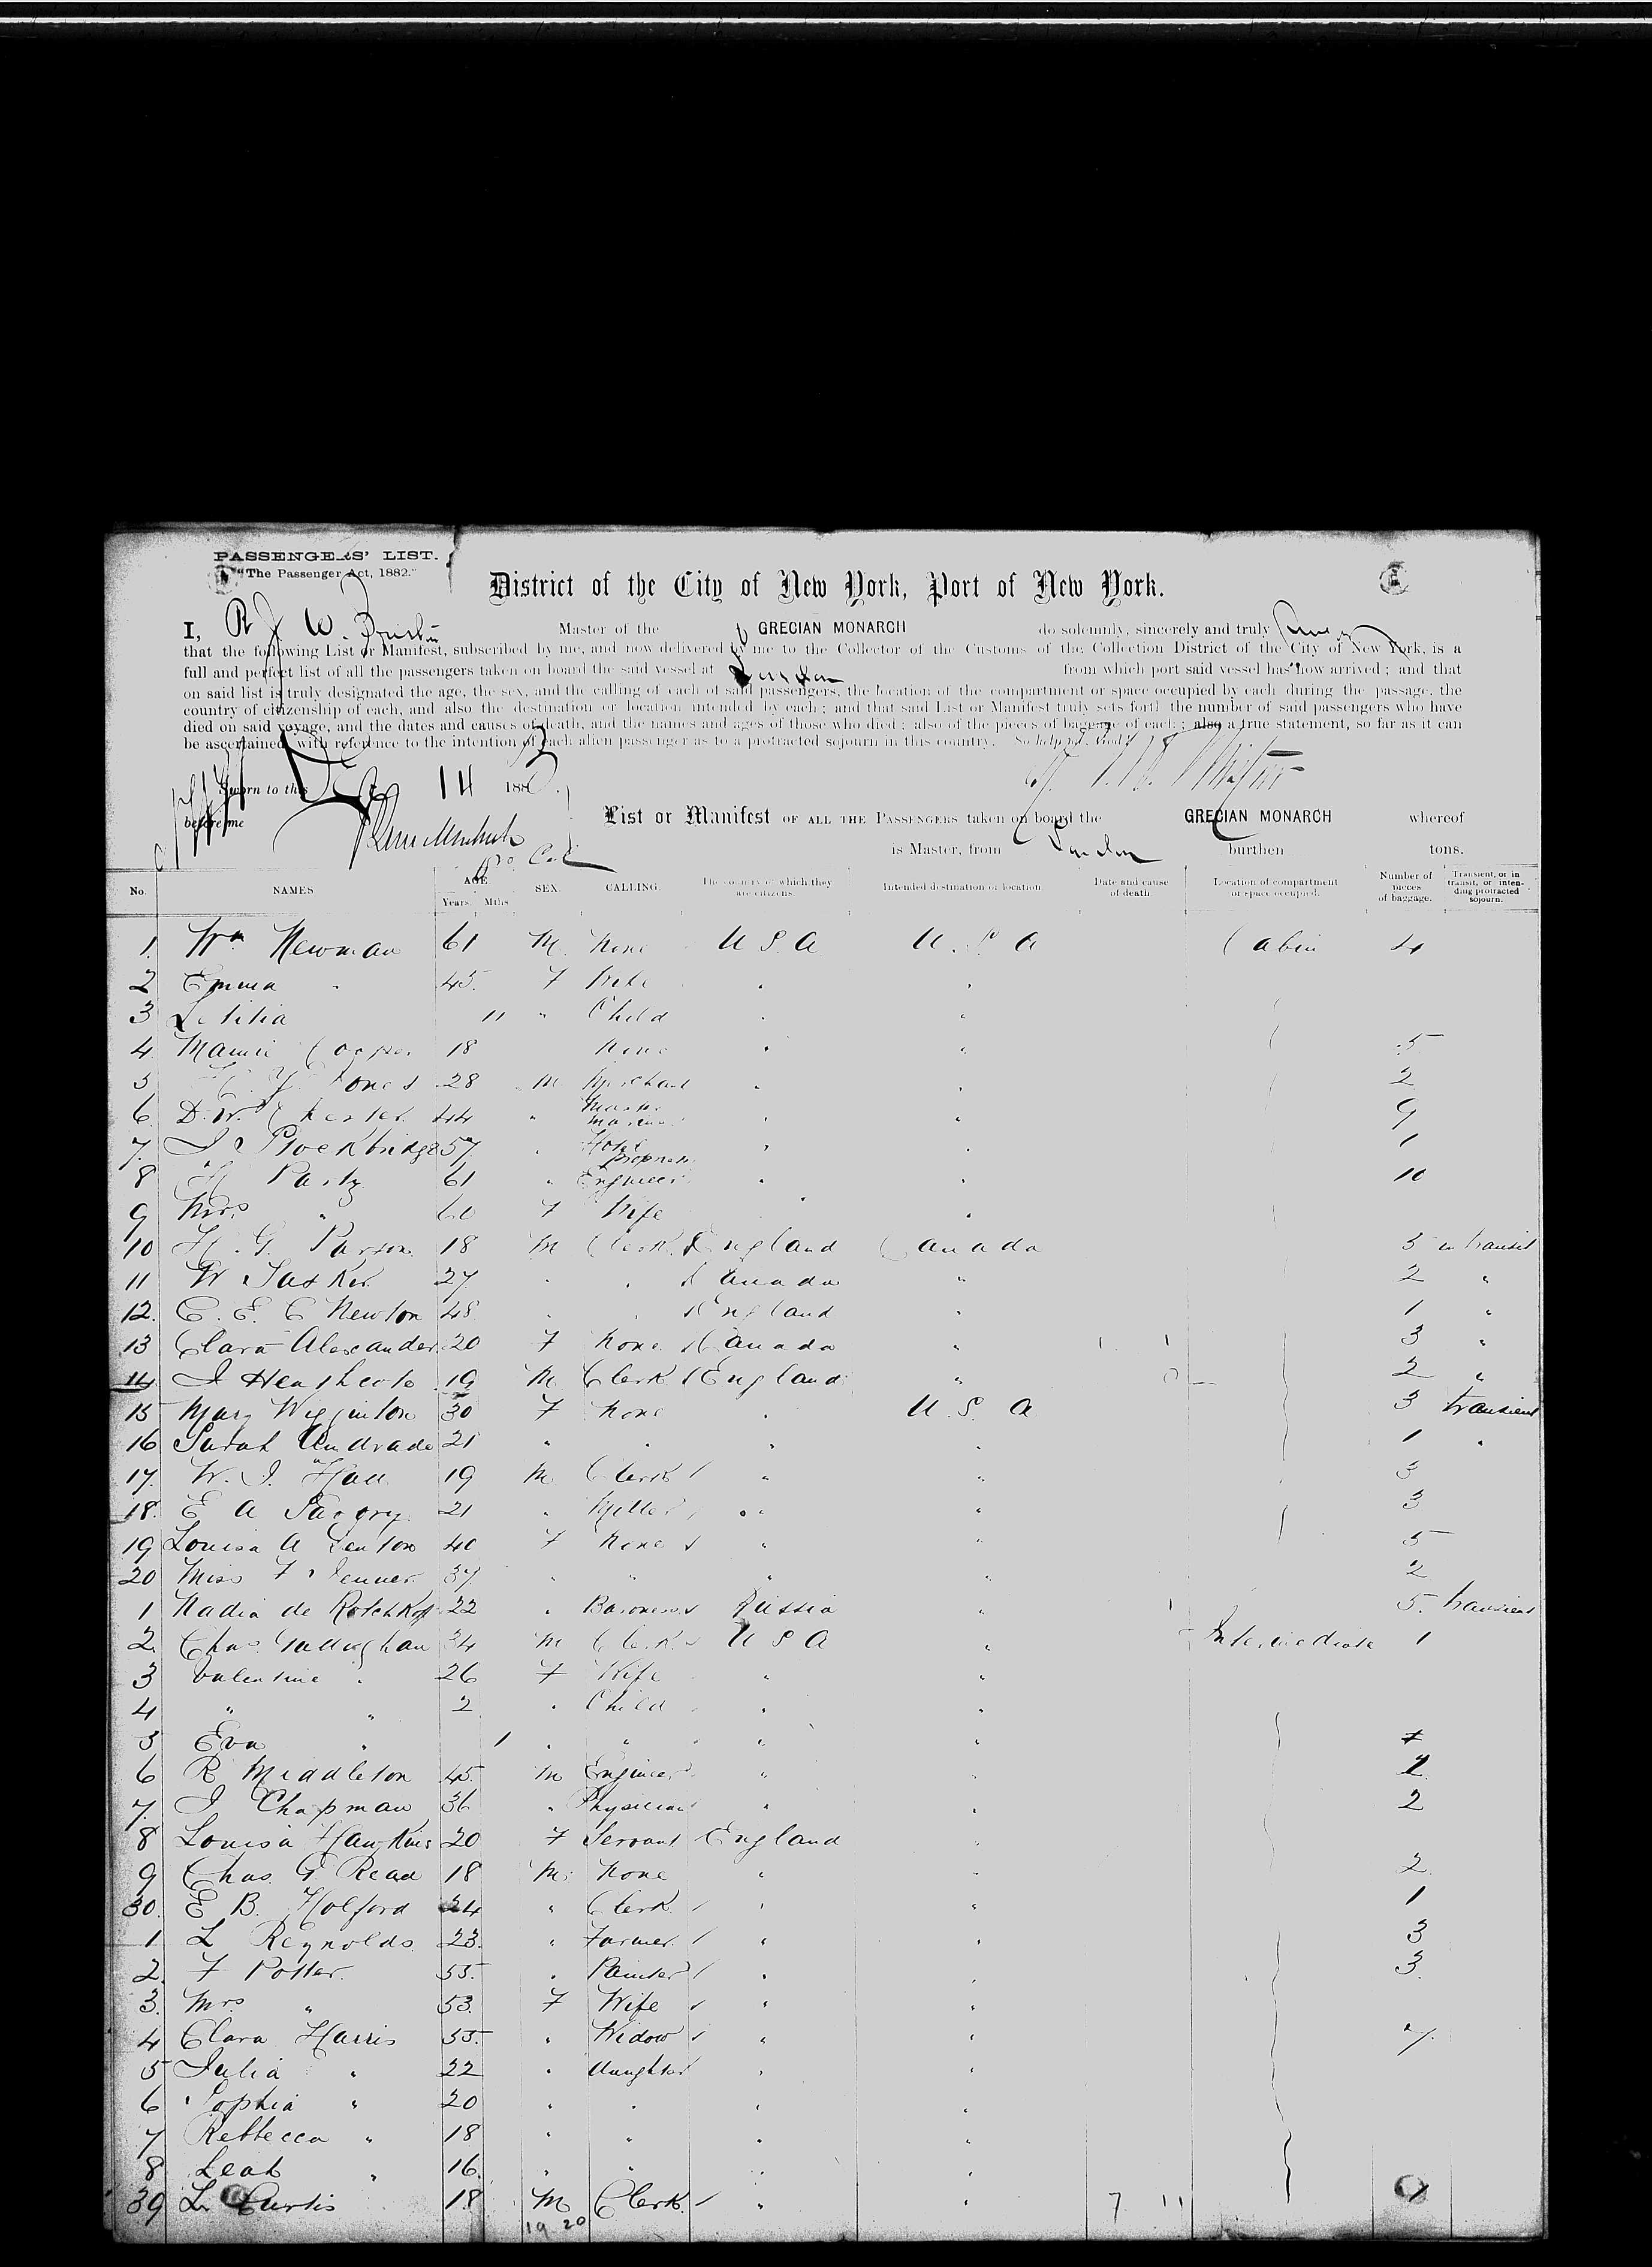 PASSENGERS' LIST.
"The Passenger Act, 1882."
District of the City of New York, Port of New York.
I, R J W. Master of the GRECIAN MONARCH do solemnly, sincerely and truly
that the following List or Manifest, subscribed by me, and now delivered by me to the Collector of the Customs of the Collection District of the City of New York, is a
full and perfect list of all the passengers taken on board the said vessel at London from which port said vessel has now arrived; and that
on said list is truly designated the age, the sex, and the calling of each of said passengers, the location of the compartment or space occupied by each during the passage, the
country of citizenship of each, and also the destination or location intended by each; and that said List or Manifest truly sets forth the number of said passengers who have
died on said voyage, and the dates and causes of death, and the names and ages of those who died; also of the pieces of baggage of each; also a true statement, so far as it can
be ascertained, with reference to the intention of each alien passenger as to a protracted sojourn in this country. So help me, God.
Sworn to this 14 188
before me
List or Manifest OF ALL THE PASSENGERS taken on board the GRECIAN MONARCH whereof
is Master, from London burthen tons.
No. NAMES AGE. Years. Mths. SEX. CALLING. The country of which they are citizens. Intended destination or location. Date and cause of death. Location of compartment or space occupied. Number of pieces of baggage. Transient, or in transit, or intending protracted sojourn.
1. Wm Newman 61 M. None U S A U. S A Cabin 4
2 Emma " 45. F Wife " "
3 Letitia 11 " Child " "
4 Mamie Cooper 18 None " " 5
5 Jones 28 M Merchant " " 2
6 D. W. Chester 44 " Master Mariner " " 9
7. Stockbridge 57 " Hotel Proprietor " " 1
8 61 " Engineer " " 10
9 Mrs " 60 F Wife " "
10 H. G. Parson 18 M Clerk England Canada 3 in transit
11 W 27 " " Canada " 2 "
12. C. E. C Newton 48 " " England " 1 "
13 Clara Alexander 20 F None Canada " 3 "
14 J Heathcote 19 M Clerk England " 2 "
15 Mary Wigginton 30 F None " U. S. A 3 transient
16 Sarah Andrade 21 " " " " 1 "
17. W. J. Hall 19 M Clerk " " 3
18. E A 21 " " " 3
19 Louisa A 40 F None " " 5
20 Miss F Jenner 37 " " " " 2
1 Nadia de 22 " Baroness Russia " 5. transient
2 Chas. 34 M Clerk U S A " Intermediate 1
3 Valentine " 26 F Wife " "
4 " " 2 " Child " "
5 Eva " 1 " " " "
6 R Middleton 45. M Engineer " "
7. J Chapman 36 " Physician " " 2
8 Louisa Hawkins 20 F Servant England
9 Chas. G Read 18 M. None " " 2.
30. E B. Holford 24 " Clerk " " 1
1 L Reynolds 23. " Farmer " " 3
2. F Potter. 55. " Painter " " 3.
3. Mrs " 53. F Wife " "
4 Clara Harris 55. " Widow " " 7.
5 Julia " 22 " daughter " "
6 Sophia " 20 " " " "
7 Rebbecca " 18 " " " "
8 Leah " 16. " " " "
39 L. Curtis 18 M Clerk " " 7 11
19 20